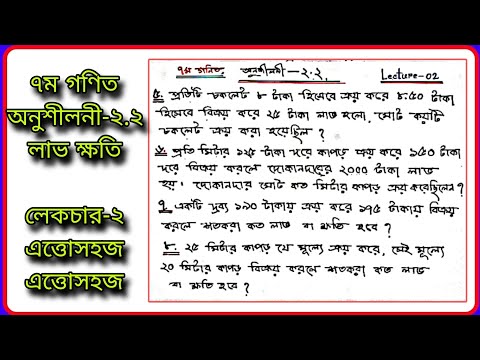 ৭ম গণিত
অনুশীলনী-২.২
লাভ ক্ষতি
লেকচার-২
এত্তোসহজ
এত্তোসহজ
৭ম গণিত অনুশীলনী-২.২. Lecture-02
৫. প্রতিটি চকলেট ৮ টাকা হিসেবে ক্রয় করে ৮.৫০ টাকা
হিসেবে বিক্রয় করে ২৫ টাকা লাভ হলো, মোট কয়টি
চকলেট ক্রয় করা হয়েছিল ?
৬. প্রতি মিটার ১২৫ টাকা দরে কাপড় ক্রয় করে ১৫০ টাকা
দরে বিক্রয় করলে দোকানদারের ২০০০ টাকা লাভ
হয়। দোকানদার মোট কত মিটার কাপড় ক্রয় করেছিলেন ?
৭. একটি দ্রব্য ১৯০ টাকায় ক্রয় করে ১৭৫ টাকায় বিক্রয়
করলে শতকরা কত লাভ বা ক্ষতি হবে ?
৮. ২৫ মিটার কাপড় যে মূল্যে ক্রয় করে, সেই মূল্যে
২০ মিটার কাপড় বিক্রয় করলে শতকরা কত লাভ
বা ক্ষতি হবে ?